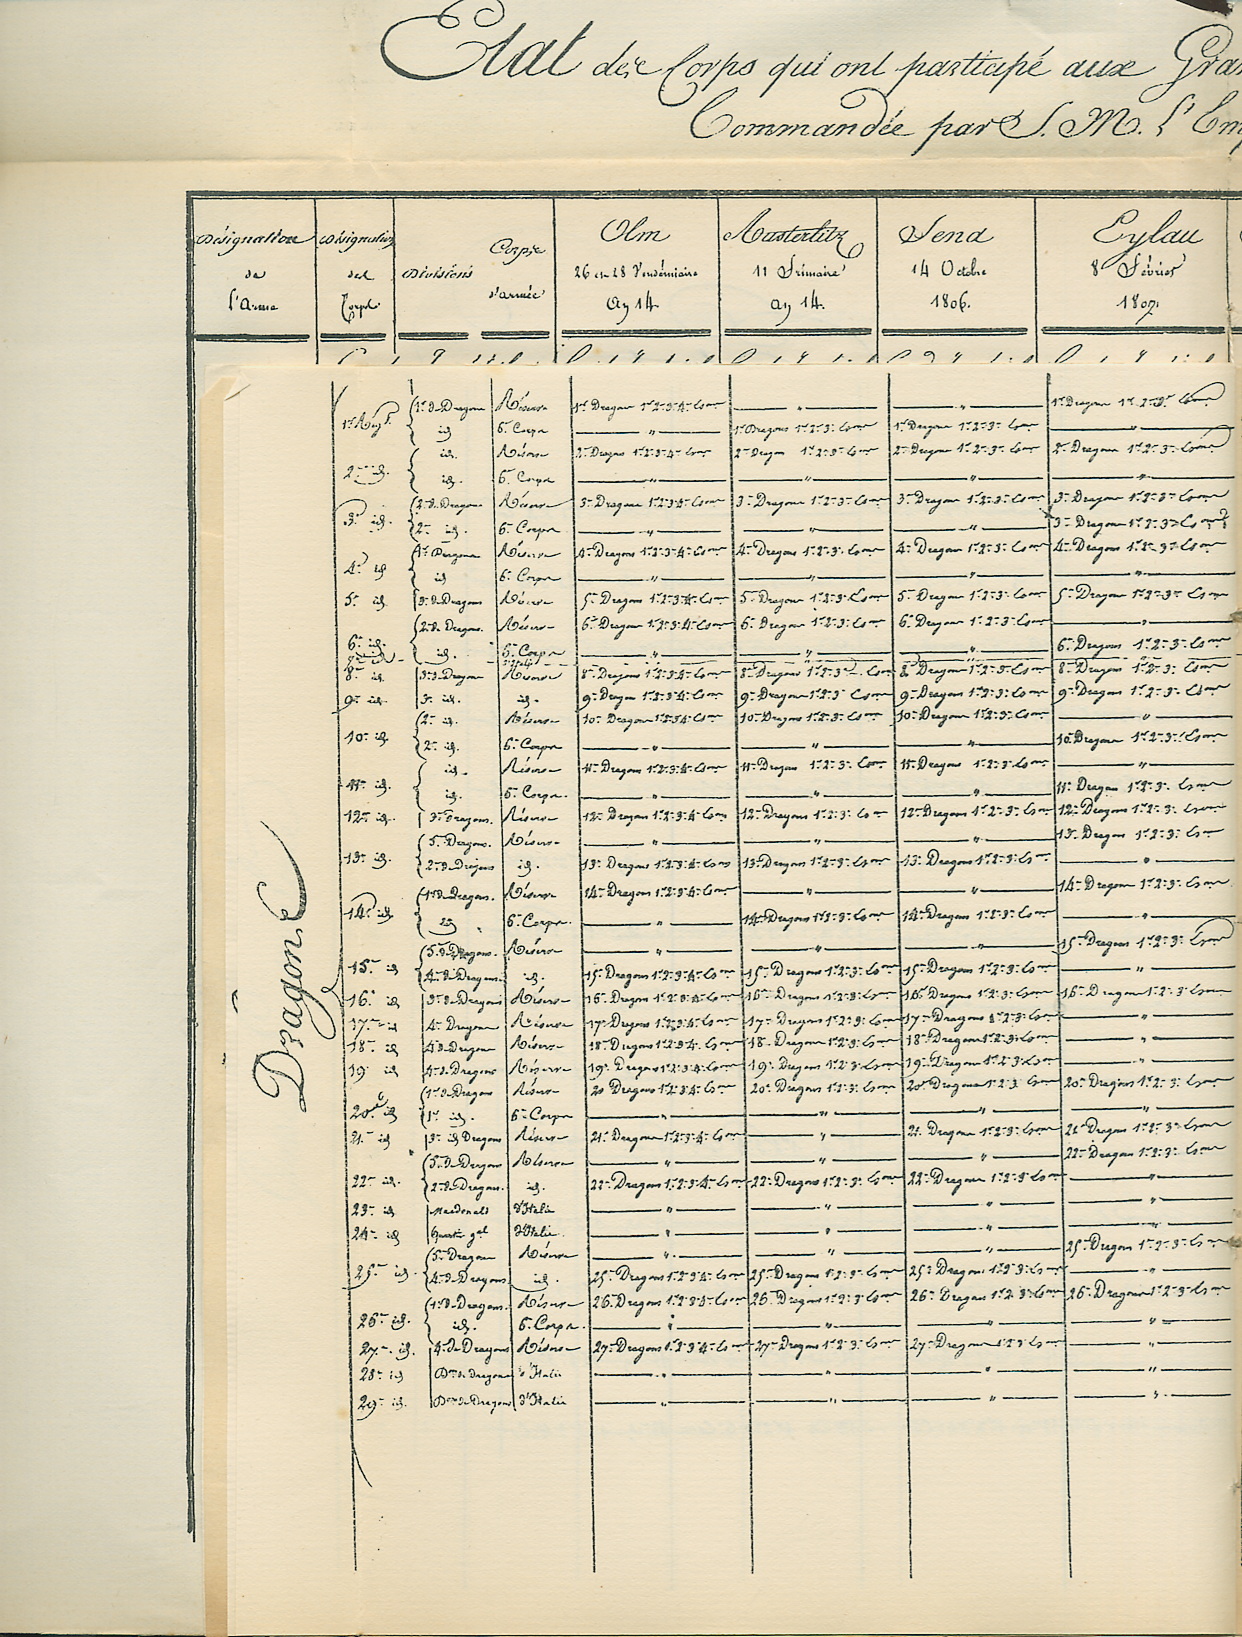 Etat des Corps qui ont participé aux Gran
Commandée par S. M. l'Emp
Désignation de l'Arme
Désignation des Corps
Divisions
Corps d'armée
Olm 26 et 28 Vendémiaire An 14.
Austerlitz 11 Frimaire An 14.
Iena 14 Octobre 1806.
Eylau 8 Février 1807.
Dragons
1er Régt. 1re D. Dragons Réserve 1er Dragons 1.2.3.4. Escons " " 1er Dragons 1.2.3. Escons
id. 6e Corps " 1er Dragons 1.2.3. Escons 1er Dragons 1.2.3. Escons "
2e id. id. Réserve 2e Dragons 1.2.3.4. Escons 2e Dragons 1.2.3. Escons 2e Dragons 1.2.3. Escons 2e Dragons 1.2.3. Escons
id. 6e Corps " " " "
3e id. 2e D. Dragons Réserve 3e Dragons 1.2.3.4. Escons 3e Dragons 1.2.3. Escons 3e Dragons 1.2.3. Escons 3e Dragons 1.2.3. Escons
2e id. 6e Corps " " " 3e Dragons 1.2.3. Escons
4e id. 1re Dragons Réserve 4e Dragons 1.2.3.4. Escons 4e Dragons 1.2.3. Escons 4e Dragons 1.2.3. Escons 4e Dragons 1.2.3. Escons
id. 6e Corps " " " "
5e id. 3e D. Dragons Réserve 5e Dragons 1.2.3.4. Escons 5e Dragons 1.2.3. Escons 5e Dragons 1.2.3. Escons 5e Dragons 1.2.3. Escons
6e id. 2e D. Dragons. Réserve 6e Dragons 1.2.3.4. Escons 6e Dragons 1.2.3. Escons 6e Dragons 1.2.3. Escons "
id. 6e Corps " " " 6e Dragons 1.2.3. Escons
8e id. 3e D. Dragons Réserve 8e Dragons 1.2.3.4. Escons 8e Dragons 1.2.3. Escons 8e Dragons 1.2.3. Escons 8e Dragons 1.2.3. Escons
9e id. 3e id. id. 9e Dragons 1.2.3.4. Escons 9e Dragons 1.2.3. Escons 9e Dragons 1.2.3. Escons 9e Dragons 1.2.3. Escons
10e id. 2e id. Réserve 10e Dragons 1.2.3.4. Escons 10e Dragons 1.2.3. Escons 10e Dragons 1.2.3. Escons "
2e id. 6e Corps " " " 10e Dragons 1.2.3. Escons
11e id. id. Réserve 11e Dragons 1.2.3.4. Escons 11e Dragons 1.2.3. Escons 11e Dragons 1.2.3. Escons "
id. 6e Corps. " " " 11e Dragons 1.2.3. Escons
12e id. 3e Dragons. Réserve 12e Dragons 1.2.3.4. Escons 12e Dragons 1.2.3. Escons 12e Dragons 1.2.3. Escons 12e Dragons 1.2.3. Escons
13e id. 5e Dragons. Réserve " " " 13e Dragons 1.2.3. Escons
2e D. Dragons id. 13e Dragons 1.2.3.4. Escons 13e Dragons 1.2.3. Escons 13e Dragons 1.2.3. Escons "
14e id. 1re D. Dragons. Réserve 14e Dragons 1.2.3.4. Escons " " 14e Dragons 1.2.3. Escons
id. 6e Corps. " 14e Dragons 1.2.3. Escons 14e Dragons 1.2.3. Escons "
15e id. 5e D. Dragons. Réserve " " " 15e Dragons 1.2.3. Escons
4e D. Dragons. id. 15e Dragons 1.2.3.4. Escons 15e Dragons 1.2.3. Escons 15e Dragons 1.2.3. Escons "
16e id. 3e D. Dragons Réserve 16e Dragons 1.2.3.4. Escons 16e Dragons 1.2.3. Escons 16e Dragons 1.2.3. Escons 16e Dragons 1.2.3. Escons
17e id. 4e Dragons Réserve 17e Dragons 1.2.3.4. Escons 17e Dragons 1.2.3. Escons 17e Dragons 1.2.3. Escons "
18e id. 4e D. Dragons Réserve 18e Dragons 1.2.3.4. Escons 18e Dragons 1.2.3. Escons 18e Dragons 1.2.3. Escons "
19e id. 4e D. Dragons Réserve 19e Dragons 1.2.3.4. Escons 19e Dragons 1.2.3. Escons 19e Dragons 1.2.3. Escons "
20e id. 1re D. Dragons Réserve 20e Dragons 1.2.3.4. Escons 20e Dragons 1.2.3. Escons 20e Dragons 1.2.3. Escons 20e Dragons 1.2.3. Escons
1re id. 6e Corps " " " "
21e id. 3e id. Dragons Réserve 21e Dragons 1.2.3.4. Escons " 21e Dragons 1.2.3. Escons 21e Dragons 1.2.3. Escons
22e id. 5e D. Dragons Réserve " " " 22e Dragons 1.2.3. Escons
2e D. Dragons. id. 22e Dragons 1.2.3.4. Escons 22e Dragons 1.2.3. Escons 22e Dragons 1.2.3. Escons "
23e id. Macdonald d'Italie " " " "
24e id. Quartier gal d'Italie. " " " "
25e id. 5e Dragons Réserve " " " 25e Dragons 1.2.3. Escons
4e D. Dragons id. 25e Dragons 1.2.3.4. Escons 25e Dragons 1.2.3. Escons 25e Dragons 1.2.3. Escons "
26e id. 1re D. Dragons. Réserve 26e Dragons 1.2.3.4. Escons 26e Dragons 1.2.3. Escons 26e Dragons 1.2.3. Escons 26e Dragons 1.2.3. Escons
id. 6e Corps. " " " "
27e id. 4e D. Dragons Réserve 27e Dragons 1.2.3.4. Escons 27e Dragons 1.2.3. Escons 27e Dragons 1.2.3. Escons "
28e id. Don de Dragons d'Italie " " " "
29e id. Don de Dragons d'Italie " " " "